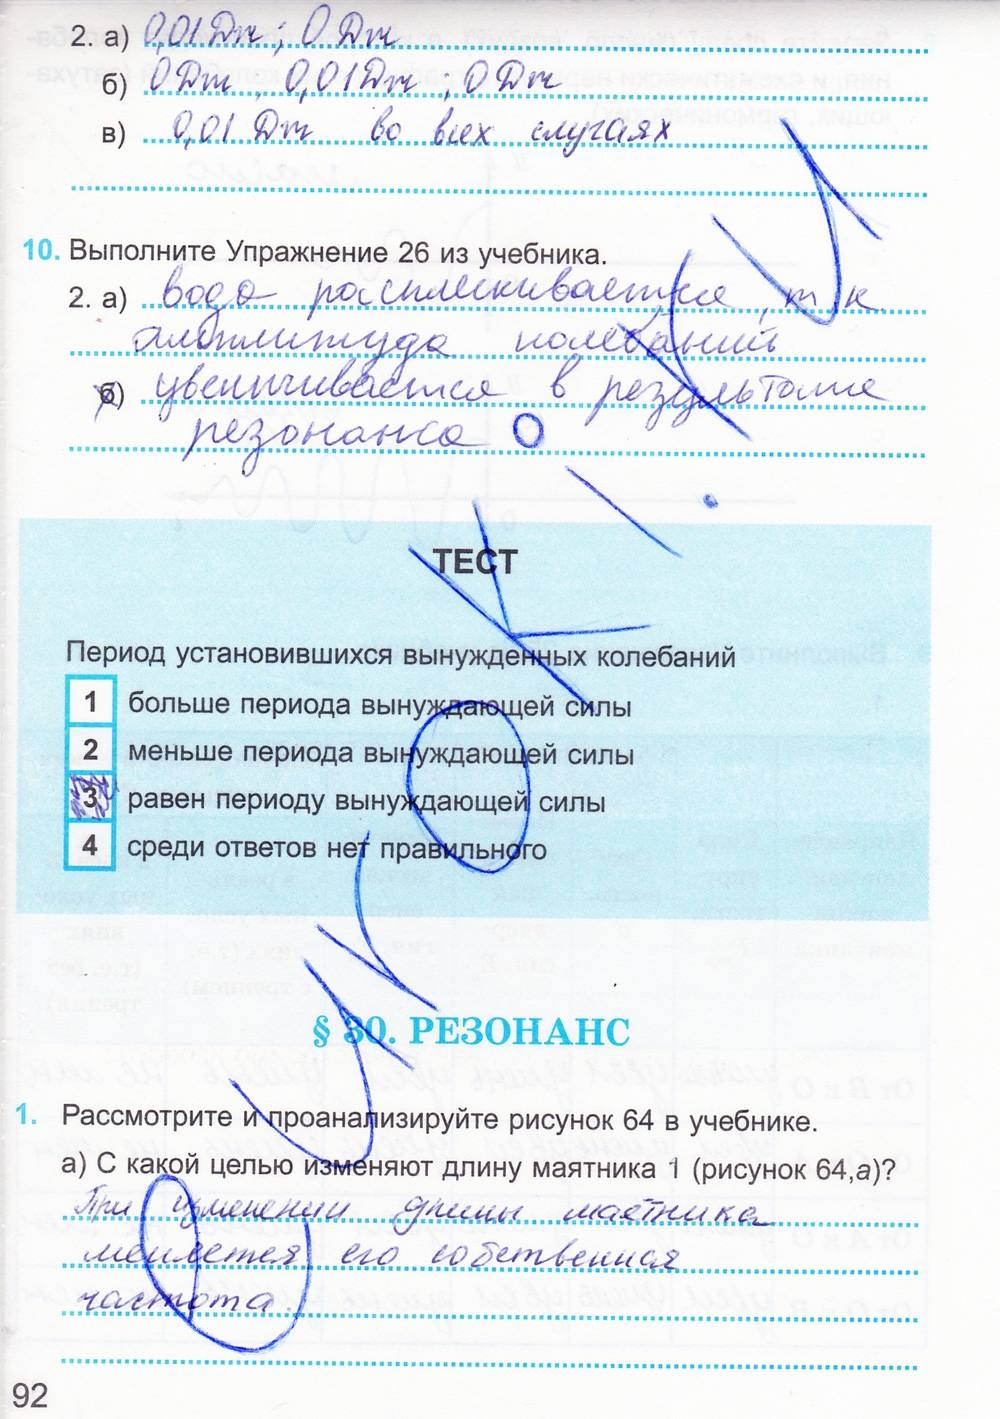 2. а) 0,01 Дж; 0 Дж
б) 0 Дж; 0,01 Дж; 0 Дж
в) 0,01 Дж во всех случаях
10. Выполните Упражнение 26 из учебника.
2. а) вода расплескивается, т. к.
амплитуда колебаний
б) увеличивается в результате
резонанса
ТЕСТ
Период установившихся вынужденных колебаний
1 больше периода вынуждающей силы
2 меньше периода вынуждающей силы
3 равен периоду вынуждающей силы
4 среди ответов нет правильного
§ 30. РЕЗОНАНС
1. Рассмотрите и проанализируйте рисунок 64 в учебнике.
а) С какой целью изменяют длину маятника 1 (рисунок 64,а)?
При изменении длины маятника
меняется его собственная
частота.
92